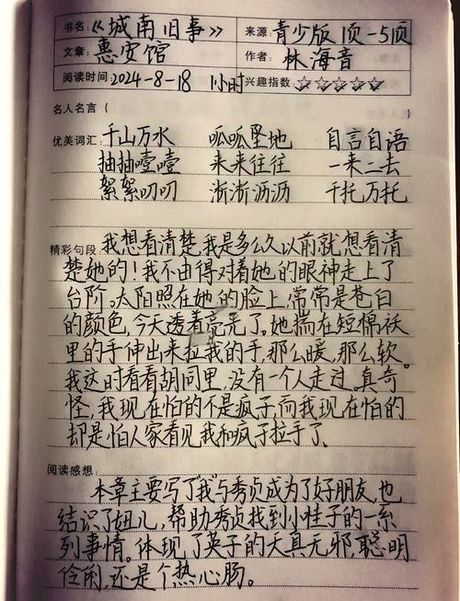 书名:《城南旧事》 来源:青少版 1页-5页
文章:惠安馆 作者:林海音
阅读时间 2024-8-18 1小时 兴趣指数☆☆☆☆☆
名人名言(
优美词汇:千山万水 呱呱坠地 自言自语
抽抽噎噎 来来往往 一来二去
絮絮叨叨 淅淅沥沥 千托万托
精彩句段 我想看清楚,我是多么久以前就想看清
楚她的!我不由得对着她的眼神走上了
台阶。太阳照在她的脸上,常常是苍白
的颜色,今天透着亮光了。她揣在短棉袄
里的手伸出来拉我的手,那么暖,那么软。
我这时看看胡同里,没有一个人走过,真奇
怪,我现在怕的不是疯子,而我现在怕的
却是怕人家看见我和疯子拉手了。
阅读感想: 本章主要写了"我"与秀贞成为了好朋友,也
结识了妞儿,帮助秀贞找到小桂子的一系
列事情。体现了英子的天真无邪,聪明
伶俐,还是个热心肠。